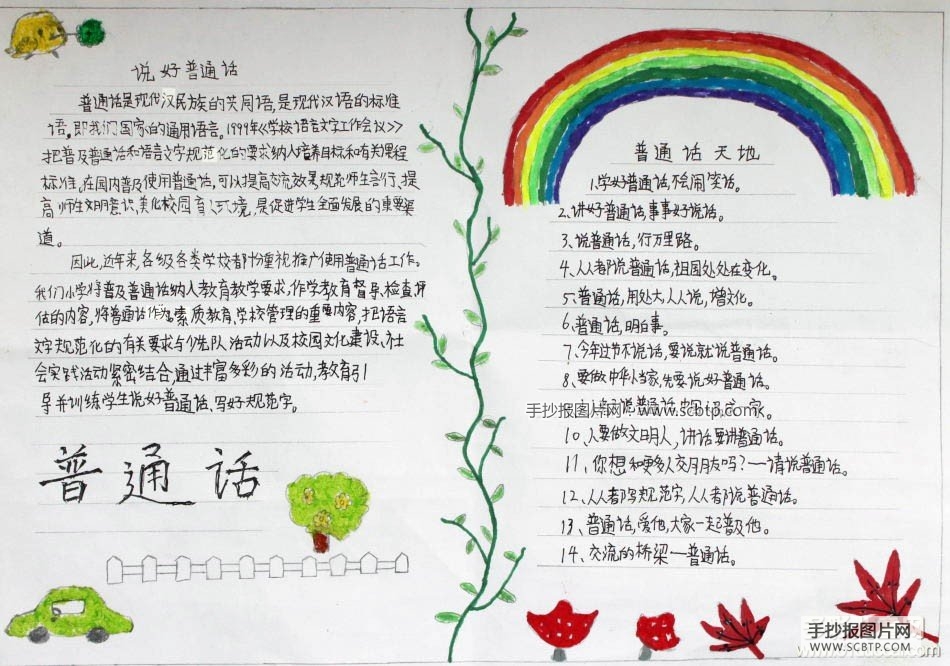 说好普通话
普通话是现代汉民族的共同语,是现代汉语的标准
语。即我们国家的通用语言。1999年《学校语言文字工作会议》
把普及普通话和语言文字规范化的要求纳入培养目标和有关课程
标准。在国内普及使用普通话,可以提高交流效果,规范师生言行、提
高师生文明意识,美化校园育人环境,是促进学生全面发展的重要渠
道。
因此,近年来,各级各类学校都十分重视推广使用普通话工作。
我们小学将普及普通话纳入教育教学要求,作学教育督导、检查、评
估的内容,将普通话作为素质教育、学校管理的重要内容,把语言
文字规范化的有关要求与少先队活动以及校园文化建设、社
会实践活动紧密结合,通过丰富多彩的活动,教育引
导并训练学生说好普通话、写好规范字。
普通话
普通话天地
1、学好普通话,不会闹笑话。
2、讲好普通话,事事好说话。
3、说普通话,行万里路。
4、人人都说普通话,祖国处处在变化。
5、普通话,用处大,人人说,增文化。
6、普通话,明白事。
7、今年过节不说话,要说就说普通话。
8、要做中华小当家,先要说好普通话。
说普通话
手抄报图片网:www.scbtp.com
10、人要做文明人,讲话要讲普通话。
11、你想和更多人交朋友吗?——请说普通话。
12、人人都写规范字,人人都说普通话。
13、普通话,爱他,大家一起普及他。
14、交流的桥梁—普通话。
手抄报图片网
WWW.SCBTP.COM